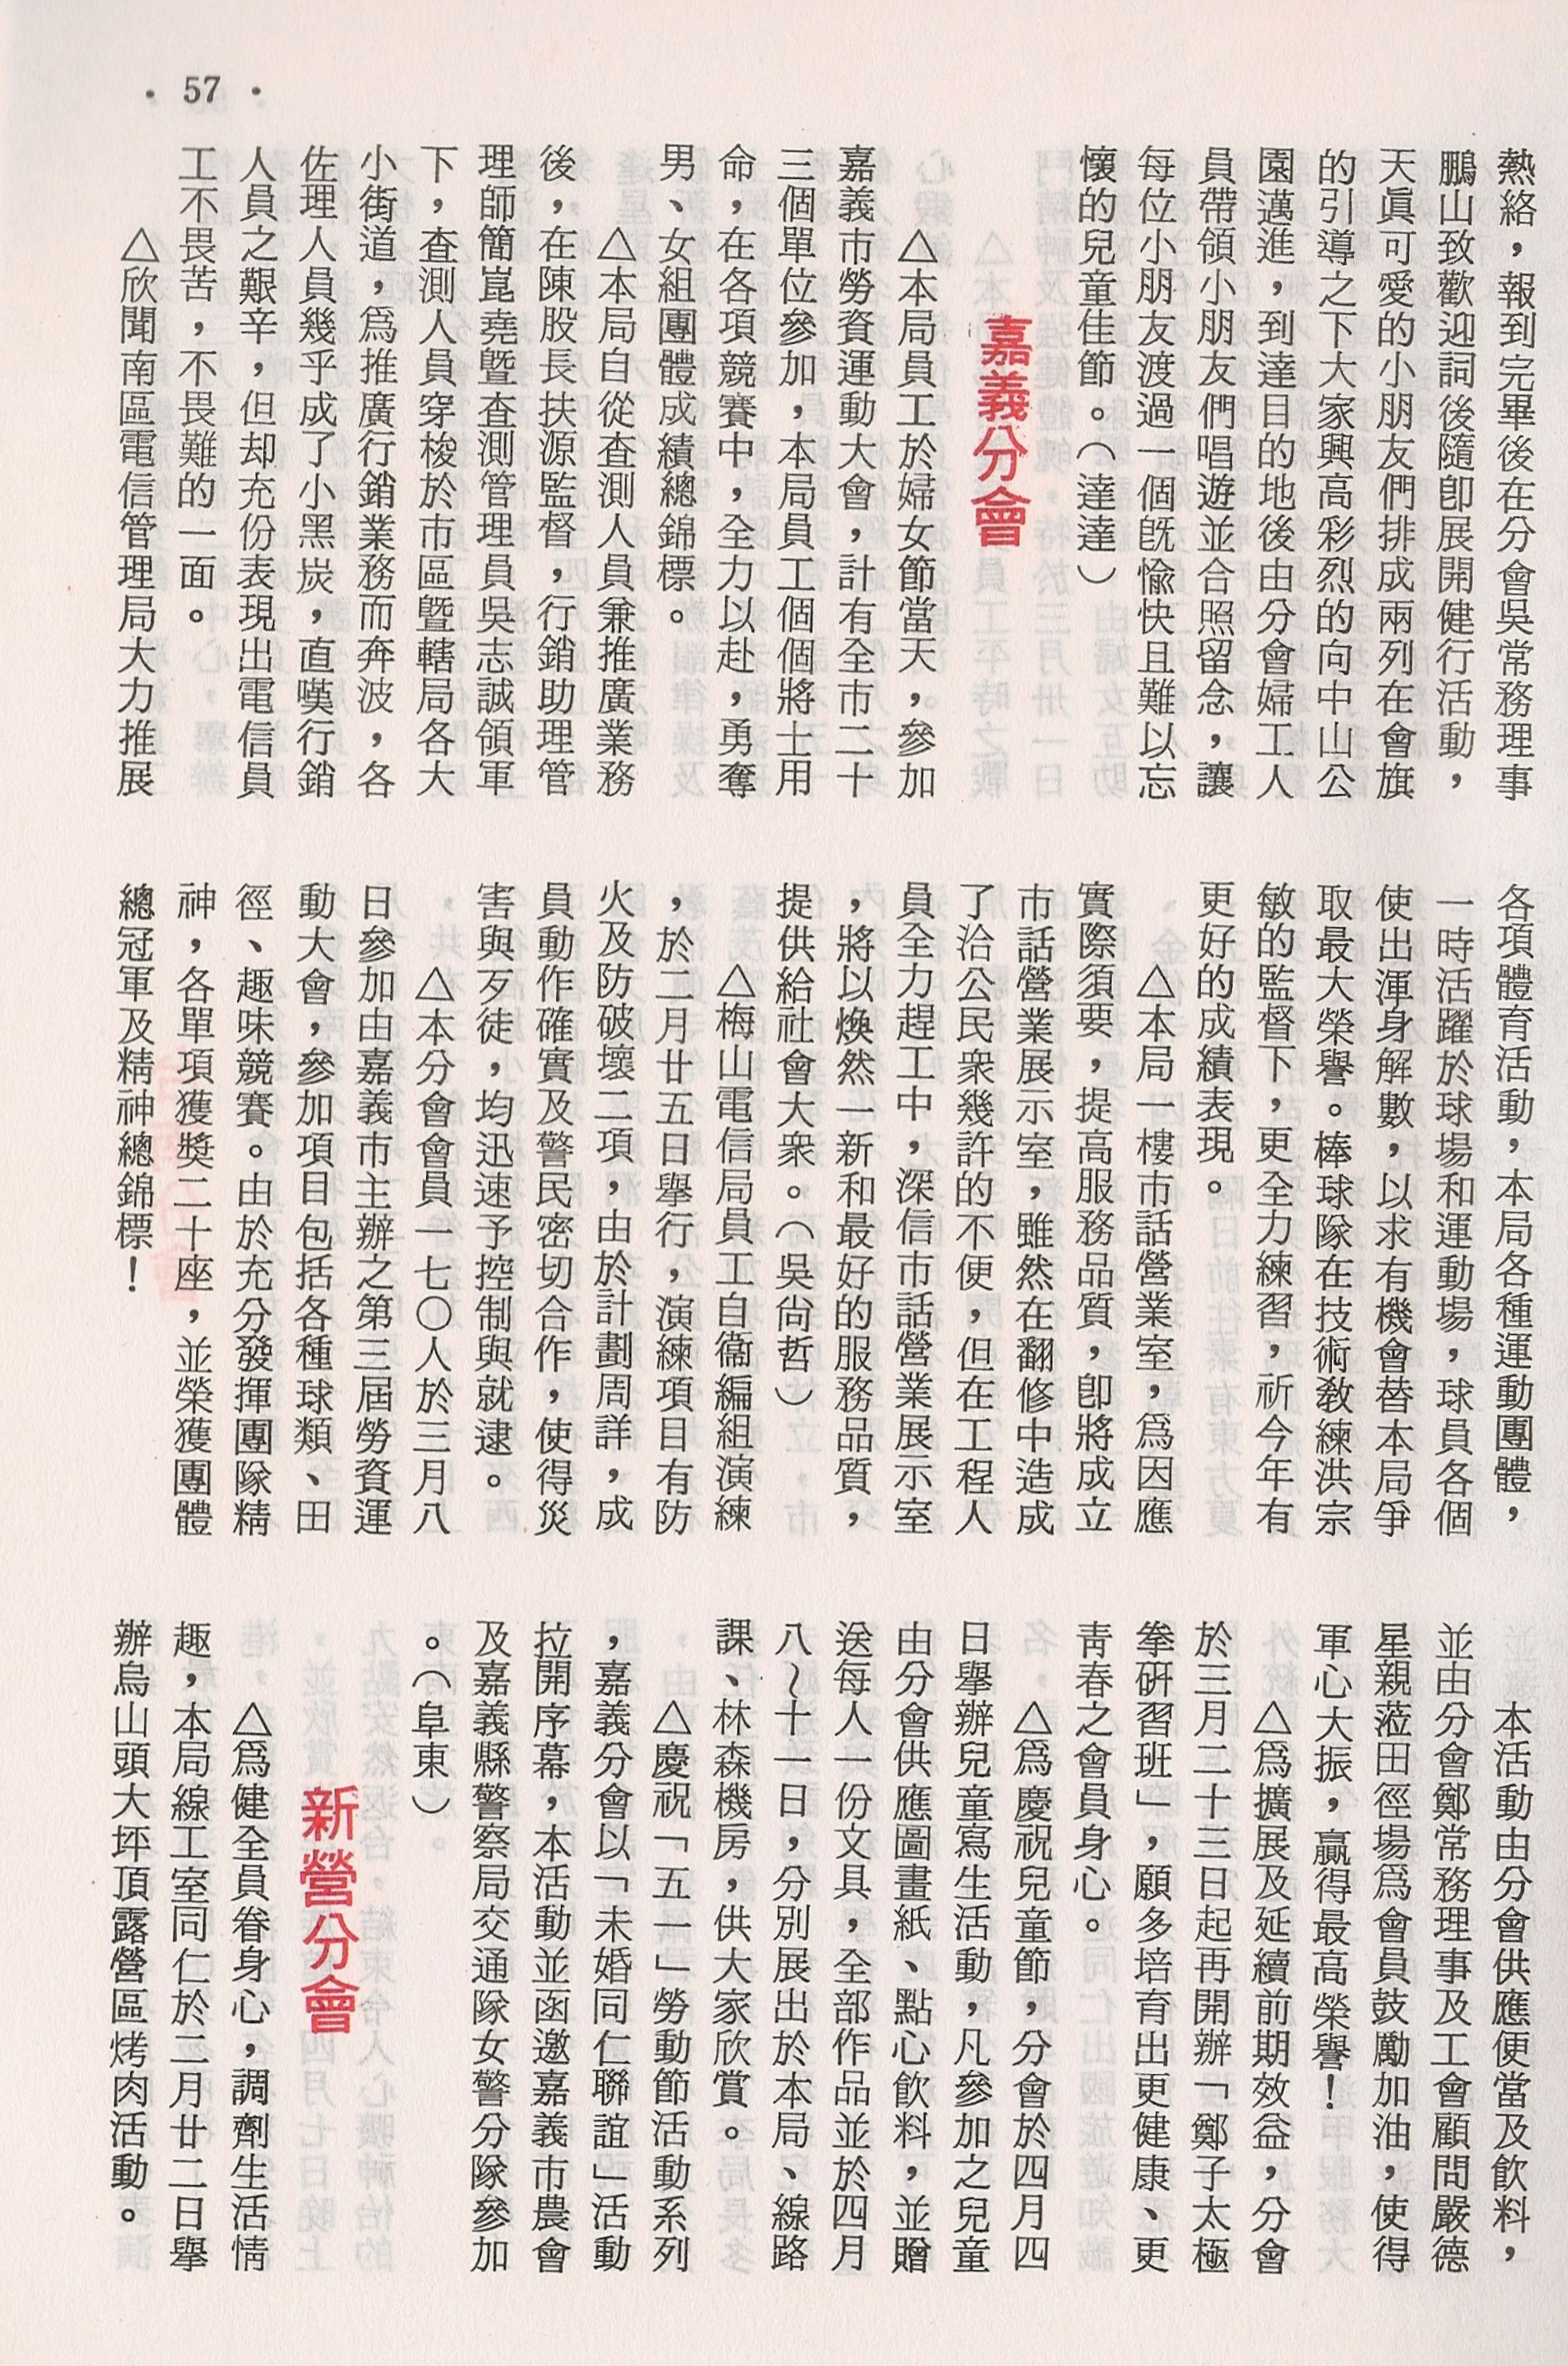 • 57 •
熱絡，報到完畢後在分會吳常務理事
鵬山致歡迎詞後隨卽展開健行活動，
天眞可愛的小朋友們排成兩列在會旗
的引導之下大家興高彩烈的向中山公
園邁進，到達目的地後由分會婦工人
員帶領小朋友們唱遊並合照留念，讓
每位小朋友渡過一個旣愉快且難以忘
懷的兒童佳節。（達達）
嘉義分會
△本局員工於婦女節當天，參加
嘉義市勞資運動大會，計有全市二十
三個單位參加，本局員工個個將士用
命，在各項競賽中，全力以赴，勇奪
男、女組團體成績總錦標。
△本局自從查測人員兼推廣業務
後，在陳股長扶源監督，行銷助理管
理師簡崑堯曁查測管理員吳志誠領軍
下，查測人員穿梭於市區曁轄局各大
小街道，爲推廣行銷業務而奔波，各
佐理人員幾乎成了小黑炭，直嘆行銷
人員之艱辛，但却充份表現出電信員
工不畏苦，不畏難的一面。
△欣聞南區電信管理局大力推展
各項體育活動，本局各種運動團體，
一時活躍於球場和運動場，球員各個
使出渾身解數，以求有機會替本局爭
取最大榮譽。棒球隊在技術教練洪宗
敏的監督下，更全力練習，祈今年有
更好的成績表現。
△本局一樓市話營業室，爲因應
實際須要，提高服務品質，卽將成立
市話營業展示室，雖然在翻修中造成
了洽公民衆幾許的不便，但在工程人
員全力趕工中，深信市話營業展示室
，將以煥然一新和最好的服務品質，
提供給社會大衆。（吳尙哲）
△梅山電信局員工自衞編組演練
，於二月廿五日舉行，演練項目有防
火及防破壞二項，由於計劃周詳，成
員動作確實及警民密切合作，使得災
害與歹徒，均迅速予控制與就逮。
△本分會會員一七○人於三月八
日參加由嘉義市主辦之第三屆勞資運
動大會，參加項目包括各種球類、田
徑、趣味競賽。由於充分發揮團隊精
神，各單項獲獎二十座，並榮獲團體
總冠軍及精神總錦標！
本活動由分會供應便當及飲料，
並由分會鄭常務理事及工會顧問嚴德
星親蒞田徑場爲會員鼓勵加油，使得
軍心大振，贏得最高榮譽！
△爲擴展及延續前期效益，分會
於三月二十三日起再開辦「鄭子太極
拳硏習班」，願多培育出更健康、更
靑春之會員身心。
△爲慶祝兒童節，分會於四月四
日舉辦兒童寫生活動，凡參加之兒童
由分會供應圖畫紙、點心飲料，並贈
送每人一份文具，全部作品並於四月
八～十一日，分別展出於本局、線路
課、林森機房，供大家欣賞。
△慶祝「五一」勞動節活動系列
，嘉義分會以「未婚同仁聯誼」活動
拉開序幕，本活動並函邀嘉義市農會
及嘉義縣警察局交通隊女警分隊參加
。（阜東）
新營分會
△爲健全員眷身心，調劑生活情
趣，本局線工室同仁於二月廿二日舉
辦烏山頭大坪頂露營區烤肉活動。